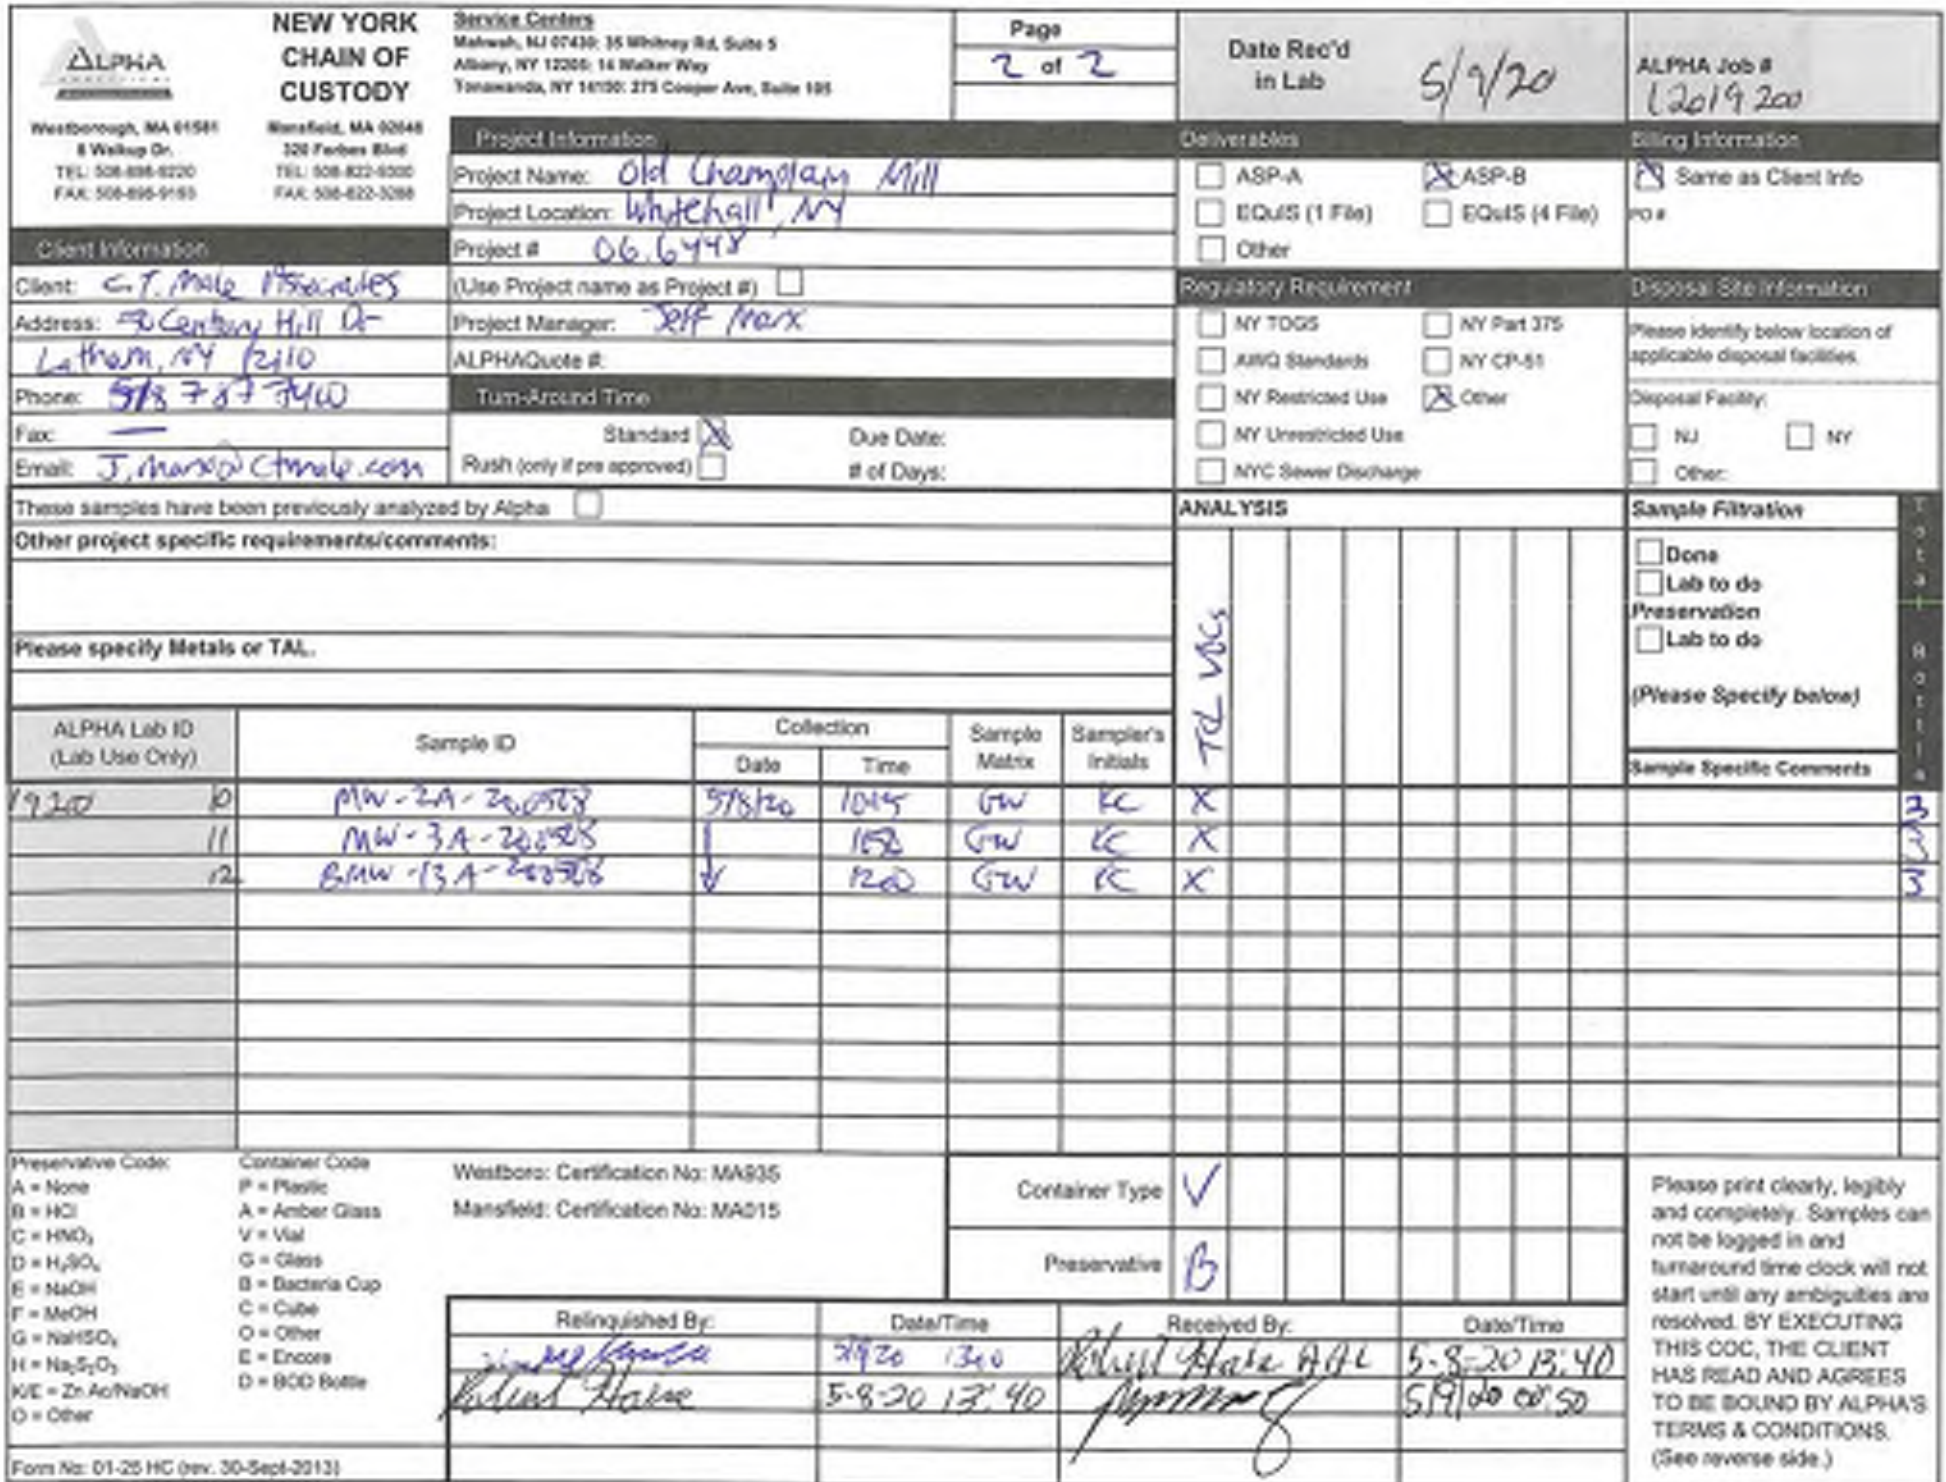 ALPHA
ANALYTICAL
Westborough, MA 01581
8 Walkup Dr.
TEL: 508-898-9220
FAX: 508-898-9193
NEW YORK
CHAIN OF
CUSTODY
Mansfield, MA 02048
320 Forbes Blvd
TEL: 508-822-9300
FAX: 508-822-3288
Service Centers
Mahwah, NJ 07430: 35 Whitney Rd, Suite 5
Albany, NY 12205: 14 Walker Way
Tonawanda, NY 14150: 275 Cooper Ave, Suite 105
Page
2 of 2
Date Rec'd
in Lab
5/9/20
ALPHA Job #
L2019200
Client Information
Client: C.T. Male Associates
Address: 50 Century Hill Dr
Latham, NY 12110
Phone: 518 787 7400
Fax: —
Email: J.marx@ctmale.com
Project Information
Project Name: Old Champlain Mill
Project Location: Whitehall, NY
Project # 06.6448
(Use Project name as Project #)
Project Manager: Jeff Marx
ALPHAQuote #:
Turn-Around Time
Standard X Due Date:
Rush (only if pre approved) # of Days:
Deliverables
ASP-A X ASP-B
EQuIS (1 File) EQuIS (4 File)
Other
Regulatory Requirement
NY TOGS NY Part 375
AWQ Standards NY CP-51
NY Restricted Use X Other
NY Unrestricted Use
NYC Sewer Discharge
Billing Information
X Same as Client Info
PO #
Disposal Site Information
Please identify below location of
applicable disposal facilities.
Disposal Facility:
NJ NY
Other:
These samples have been previously analyzed by Alpha
Other project specific requirements/comments:
Please specify Metals or TAL.
ANALYSIS
TCL VOCs
Sample Filtration
Done
Lab to do
Preservation
Lab to do
(Please Specify below)
Sample Specific Comments
Total Bottle
ALPHA Lab ID
(Lab Use Only)
Sample ID
Collection
Date Time
Sample
Matrix
Sampler's
Initials
19200 10 MW-2A-200508 5/8/20 1045 GW KC X 3
11 MW-3A-200508 GW KC X 3
12 BMW-13A-200508 1200 GW KC X 3
Preservative Code:
A = None
B = HCl
C = HNO₃
D = H₂SO₄
E = NaOH
F = MeOH
G = NaHSO₄
H = Na₂S₂O₃
K/E = Zn Ac/NaOH
O = Other
Container Code
P = Plastic
A = Amber Glass
V = Vial
G = Glass
B = Bacteria Cup
C = Cube
O = Other
E = Encore
D = BOD Bottle
Westboro: Certification No: MA935
Mansfield: Certification No: MA015
Container Type V
Preservative B
Relinquished By: Date/Time Received By: Date/Time
AAL 5-8-20 13:40
5-8-20 13:40
Please print clearly, legibly
and completely. Samples can
not be logged in and
turnaround time clock will not
start until any ambiguities are
resolved. BY EXECUTING
THIS COC, THE CLIENT
HAS READ AND AGREES
TO BE BOUND BY ALPHA'S
TERMS & CONDITIONS.
(See reverse side.)
Form No: 01-25 HC (rev. 30-Sept-2013)